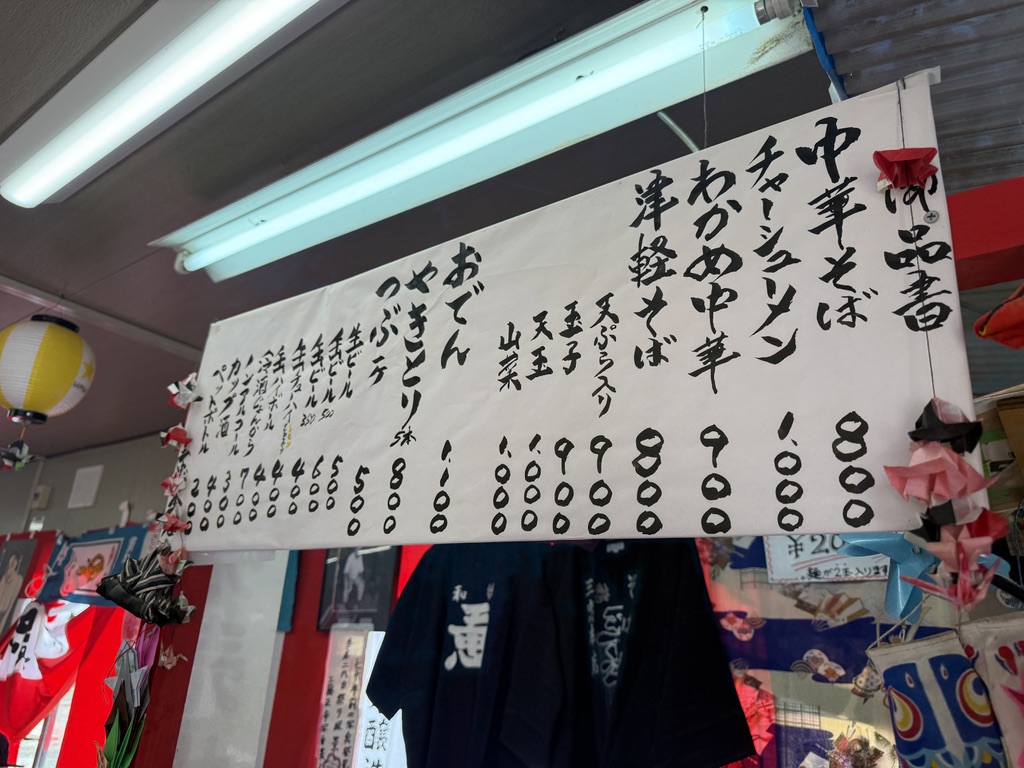 御品書
中華そば 800
チャーシューメン 1,000
わかめ中華 900
津軽そば 800
天ぷら入り 900
玉子 900
天玉 1,000
山菜 1,000
おでん 1,100
やきとり 5本 800
つぶ一ケ 500
生ビール 500
缶ビール 500 600
缶ビール 350 400
缶チューハイ 400
缶ハイボール 400
冷酒 700
ノンアルコール 300
カップ酒 400
ペットボトル 200
麺が2玉入ります